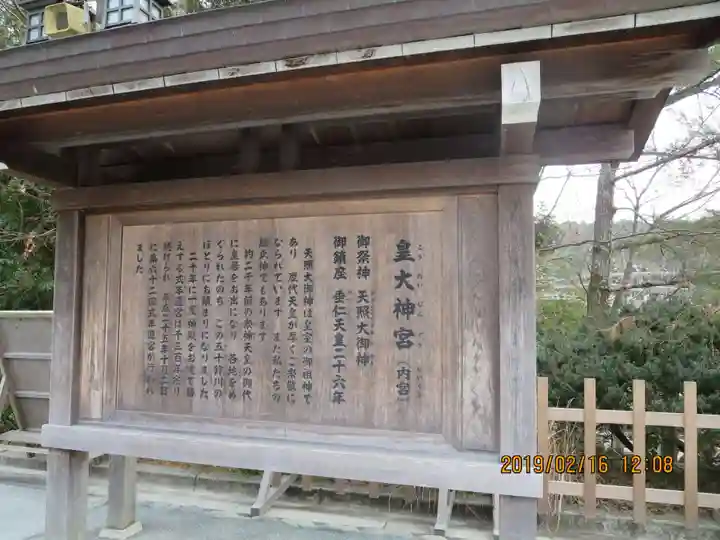 皇大神宮（内宮）
御祭神 天照大御神
御鎮座 垂仁天皇二十六年
天照大御神は皇室の御祖神で
あり 歴代天皇が厚くご崇敬に
なられています また私たちの
総氏神でもあります
約二千年前の崇神天皇の御代
に皇居をお出になり 各地をめ
ぐられたのち この五十鈴川の
ほとりにお鎮まりになりました
二十年に一度神殿をお建て替
えする式年遷宮は千三百年余り
続けられ 平成二十五年十月二日
に第六十二回式年遷宮が行われ
ました
2019/02/16 12:08